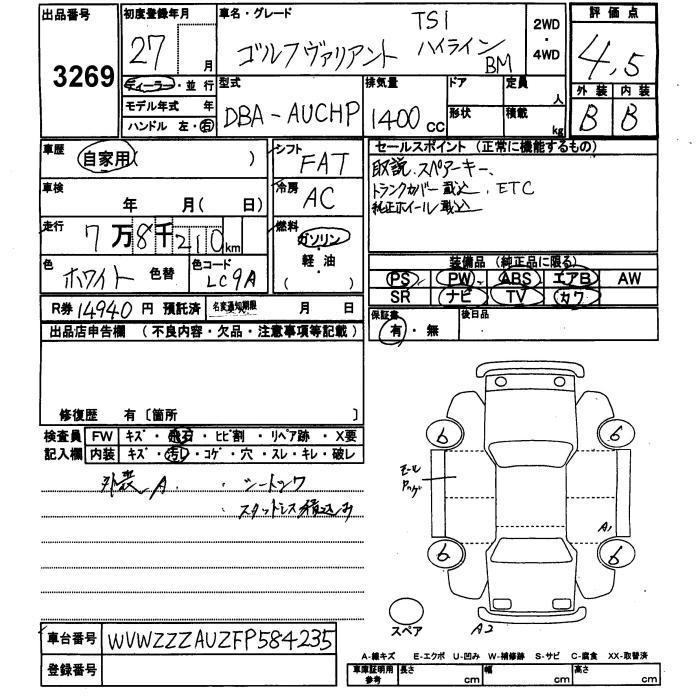 出品番号
3269
初度登録年月
27 月
ディーラー・並行
モデル年式 年
ハンドル 左・右
車名・グレード
TSI
ゴルフヴァリアント ハイライン
BM
2WD
・
4WD
評価点
4.5
外装 内装
B B
型式
DBA-AUCHP
排気量
1400cc
ドア
形状
定員
人
積載
kg
車歴
自家用( )
シフト
FAT
車検
年 月( 日)
冷房
AC
走行
7万8千210km
燃料
ガソリン
軽・油
( )
色
ホワイト 色替
色コード
LC9A
R券 14940 円 預託済 名変通知期限 月 日
セールスポイント (正常に機能するもの)
取説、スペアーキー、
トランクカバー載込、ETC
純正ホイール載込
装備品 (純正品に限る)
PS PW ABS エアB AW
SR ナビ TV カワ
保証書
有・無
後日品
出品店申告欄 (不良内容・欠品・注意事項等記載)
修復歴 有〔箇所
検査員 FW キズ・飛石・ヒビ割・リペア跡・X要
記入欄 内装 キズ・汚レ・コゲ・穴・スレ・キレ・破レ
外装 A ・シートシワ
・スタットレス積込み
6 6
モール
A1
6 6
スペア
A2
車台番号 WVWZZZAUZFP584235
登録番号
A-線キズ E-エクボ U-凹み W-補修跡 S-サビ C-腐食 XX-取替済
車庫証明用
参考
長さ cm 幅 cm 高さ cm